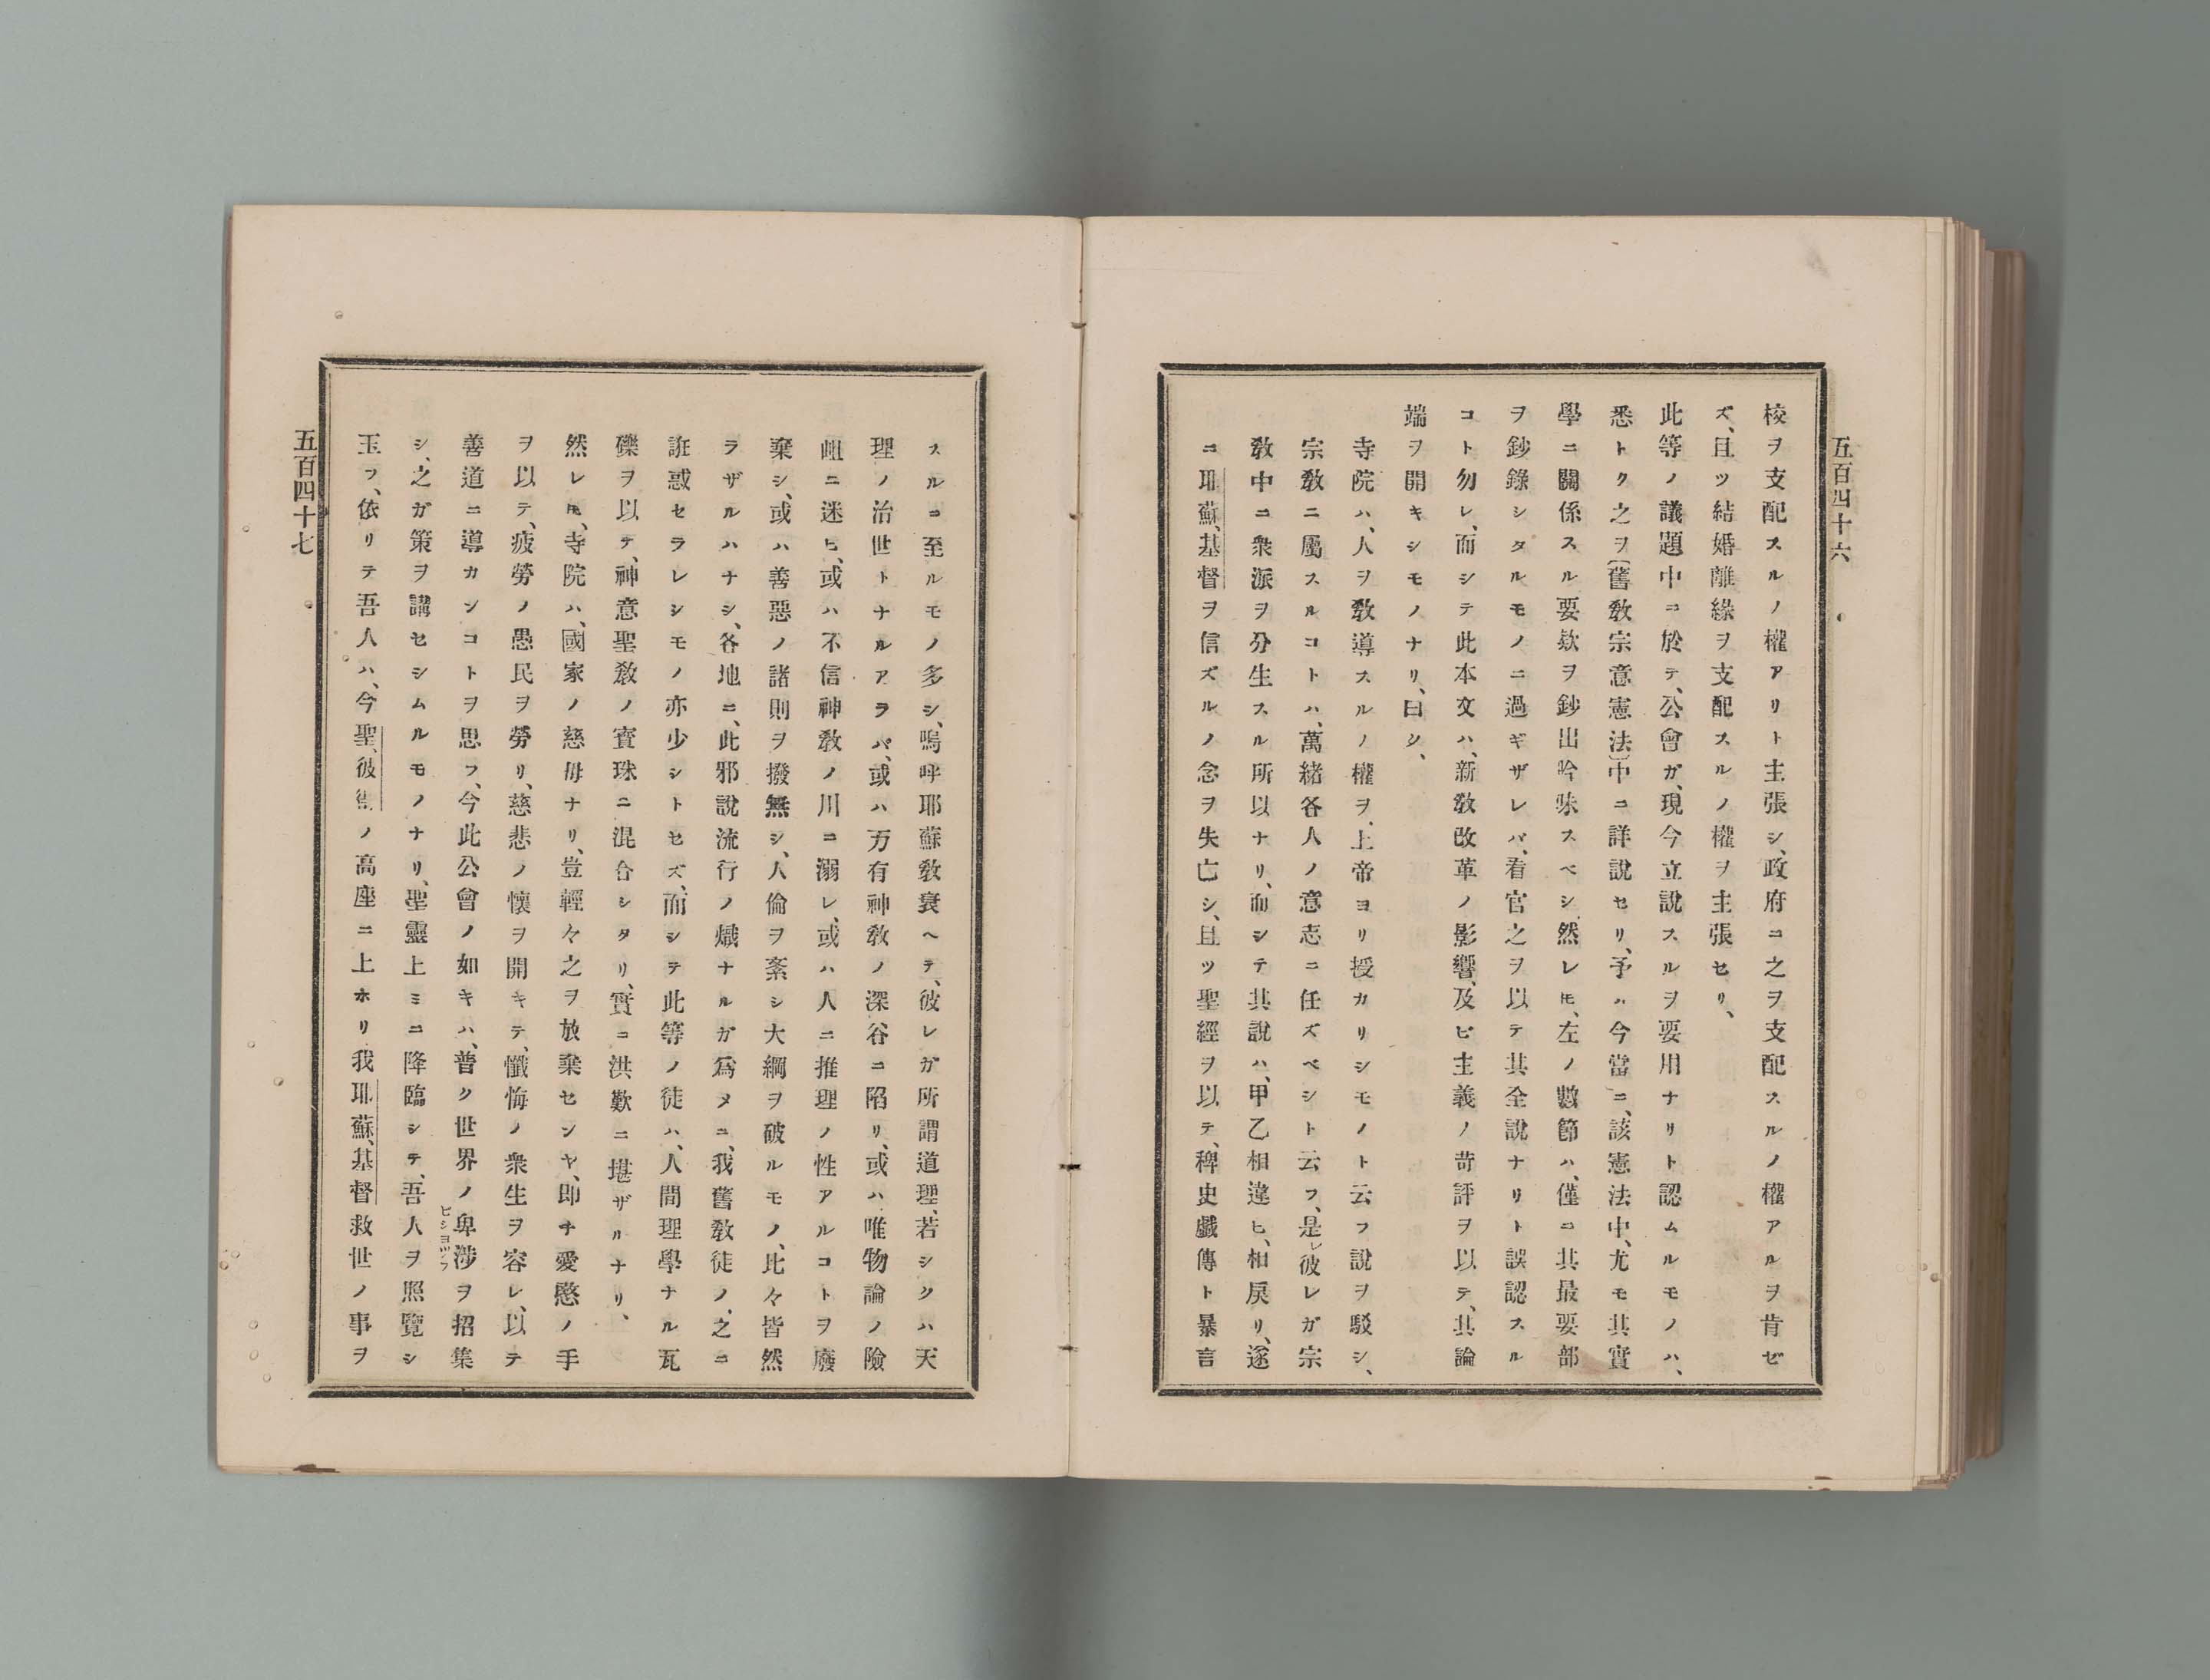 五百四十六
校ヲ支配スルノ權アリト主張シ、政府ニ之ヲ支配スルノ權アルヲ肯ゼ
ズ、且ツ結婚離緣ヲ支配スルノ權ヲ主張セリ、
此等ノ議題中ニ於テ、公會ガ、現今立說スルヲ要用ナリト認ムルモノハ、
悉トク之ヲ(舊敎宗意憲法)中ニ詳說セリ、予ハ今當ニ、該憲法中、尤モ其實
學ニ關係スル要欵ヲ鈔出吟味スベシ、然レ𪜈、左ノ數節ハ、僅ニ其最要部
ヲ鈔錄シタルモノニ過ギザレバ、看官之ヲ以テ其全說ナリト誤認スル
コト勿レ、而シテ此本文ハ、新敎改革ノ影響、及ビ主義ノ苛評ヲ以テ、其論
端ヲ開キシモノナリ、曰シ、
寺院ハ、人ヲ敎導スルノ權ヲ、上帝ヨリ授カリシモノト云フ說ヲ駁シ、
宗敎ニ屬スルコトハ、萬緖各人ノ意志ニ任ズベシト云フ、是レ彼レガ宗
敎中ニ衆派ヲ分生スル所以ナリ、而シテ其說ハ、甲乙相違ヒ、相戻リ、遂
ニ耶蘇、基督ヲ信ズルノ念ヲ失亡シ、且ツ聖經ヲ以テ、稗史戲傳ト暴言
スルニ至ルモノ多シ、嗚呼耶蘇敎衰ヘテ、彼レガ所謂道理、若シクハ天
理ノ治世トナルアラバ、或ハ万有神敎ノ深谷ニ陷リ、或ハ唯物論ノ險
岨ニ迷ヒ、或ハ不信神敎ノ川ニ溺レ、或ハ人ニ推理ノ性アルコトヲ廢
棄シ、或ハ善惡ノ諸則ヲ撥無シ、人倫ヲ紊シ大綱ヲ破ルモノ、比々皆然
ラザルハナシ、各地ニ、此邪說流行ノ熾ナルガ爲メニ、我舊敎徒ノ、之ニ
誑惑セラレシモノ亦少シトセズ、而シテ此等ノ徒ハ、人間理學ナル瓦
礫ヲ以テ、神意聖敎ノ寶珠ニ混合シタリ、實ニ洪歎ニ堪ザルナリ、
然レ𪜈、寺院ハ、國家ノ慈母ナリ、豈輕々之ヲ放棄センヤ、卽チ愛愍ノ手
ヲ以テ、疲勞ノ愚民ヲ勞リ、慈悲ノ懷ヲ開キテ、懺悔ノ衆生ヲ容レ、以テ
善道ニ導カンコトヲ思フ、今此公會ノ如キハ、普ク世界ノ卑涉ヲ招集
ビショップ
シ、之ガ策ヲ講セシムルモノナリ、聖靈上ミニ降臨シテ、吾人ヲ照覽シ
玉フ、依リテ吾人ハ、今聖、彼得ノ高座ニ上ホリ我耶蘇、基督救世ノ事ヲ
五百四十七